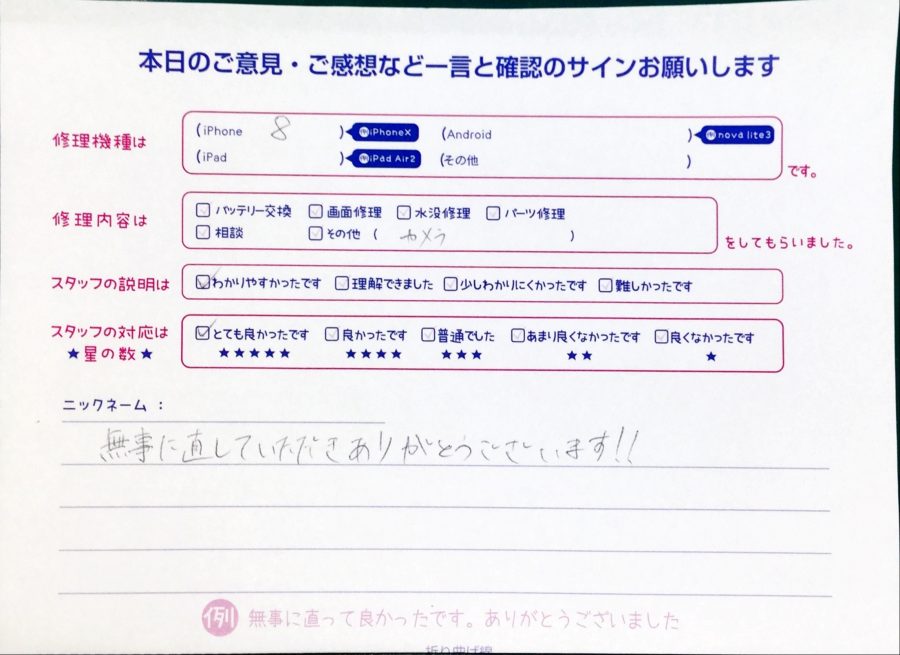 本日のご意見・ご感想など一言と確認のサインお願いします
修理機種は
(iPhone 8 ) 例iPhoneX (Android ) 例nova lite3
(iPad ) 例iPad Air2 (その他 ) です。
修理内容は
バッテリー交換 画面修理 水没修理 パーツ修理
相談 その他 ( カメラ ) をしてもらいました。
スタッフの説明は
わかりやすかったです 理解できました 少しわかりにくかったです 難しかったです
スタッフの対応は
★星の数★
とても良かったです 良かったです 普通でした あまり良くなかったです 良くなかったです
★★★★★ ★★★★ ★★★ ★★ ★
ニックネーム :
無事に直していただきありがとうございます!!
例 無事に直って良かったです。ありがとうございました
折り曲げ線